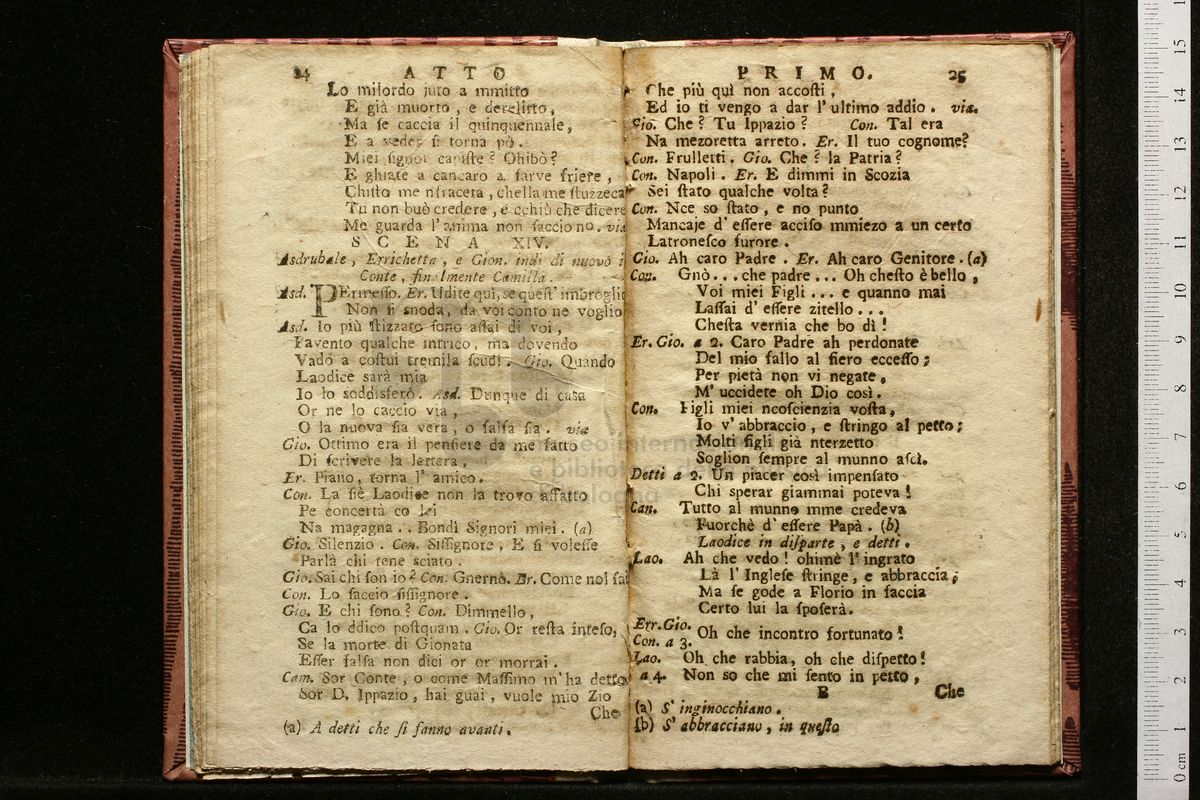 24 ATTO
Lo milordo juto a mmitto
E già muorto, e derelitto,
Ma ſe caccia il quinquennale,
E a veder ſi torna pò.
Miei ſignor capiſte? Ohibò?
E ghiate a cancaro a farve friere,
Chiſto me nſracera, chella me ſtuzzeca
Tu non buò credere, e cchiù che dicere
Me guarda l'anima non faccio no. via
SCENA XIV.
Asdrubale, Errichetta, e Gion. indi di nuovo i
Conte, finalmente Camilla.
Asd. PErmeſſo. Er. Udite qui, se queſt' imbroglio
Non ſi snoda, da voi conto ne voglio
Asd. Io più ſtizzato ſono aſſai di voi,
Pavento qualche intrico, ma dovendo
Vado a coſtui tremila ſcudi. Gio. Quando
Laodice sarà mia
Io lo soddisferò. Asd. Dunque di casa
Or ne lo caccio via,
O la nuova ſia vera, o falſa ſia. via
Gio. Ottimo era il penſiere da me fatto
Di ſcrivere la lettera,
Er. Piano, torna l'amico.
Con. La fiè Laodice non la trovo affatto
Pe concertà co lei
Na magagna.. Bondì Signori miei. (a)
Gio. Silenzio. Con. Siſſignore, E ſi voleſſe
Parlà chi tene sciato.
Gio. Sai chi ſon io? Con. Gnernò. Er. Come nol ſai
Con. Lo ſaccio ſiſſignore.
Gio. E chi ſono? Con. Dimmello,
Ca lo ddico poſtquam. Gio. Or reſta inteſo,
Se la morte di Gionata
Eſſer falſa non dici or or morrai.
Cam. Sor Conte, o come Maſſimo m'ha detto
Sor D. Ippazio, hai guai, vuole mio Zio
Che
(a) A detti che ſi fanno avanti.
PRIMO. 25
Che più quì non accoſti,
Ed io ti vengo a dar l'ultimo addio. via.
Gio. Che? Tu Ippazio? Con. Tal era
Na mezoretta arreto. Er. Il tuo cognome?
Con. Frulletti. Gio. Che? la Patria?
Con. Napoli. Er. E dimmi in Scozia
Sei ſtato qualche volta?
Con. Nce so ſtato, e no punto
Mancaje d'eſſere acciſo mmiezo a un certo
Latroneſco furore.
Gio. Ah caro Padre. Er. Ah caro Genitore. (a)
Con. Gnò... che padre... Oh cheſto è bello,
Voi miei Figli... e quanno mai
Laſſai d'eſſere zitello...
Cheſta vernia che bo dì!
Er. Gio. a 2. Caro Padre ah perdonate
Del mio fallo al fiero ecceſſo;
Per pietà non vi negate,
M' uccidete oh Dio così.
Con. Figli miei ncoſcienzia voſta,
Io v'abbraccio, e ſtringo al petto;
Molti figli già nterzetto
Soglion ſempre al munno aſcì.
Detti a 2. Un piacer così impenſato
Chi sperar giammai poteva!
Can. Tutto al munno mme credeva
Fuorchè d'eſſere Papà. (b)
Laodice in diſparte, e detti.
Lao. Ah che vedo! ohimè l'ingrato
Là l'Ingleſe ſtringe, e abbraccia;
Ma ſe gode a Florio in faccia
Certo lui la ſpoſerà.
Err. Gio.
Con. a 3. Oh che incontro fortunato!
Lao. Oh che rabbia, oh che diſpetto!
a 4. Non so che mi ſento in petto,
B Che
(a) S' inginocchiano.
(b) S' abbracciano, in queſto